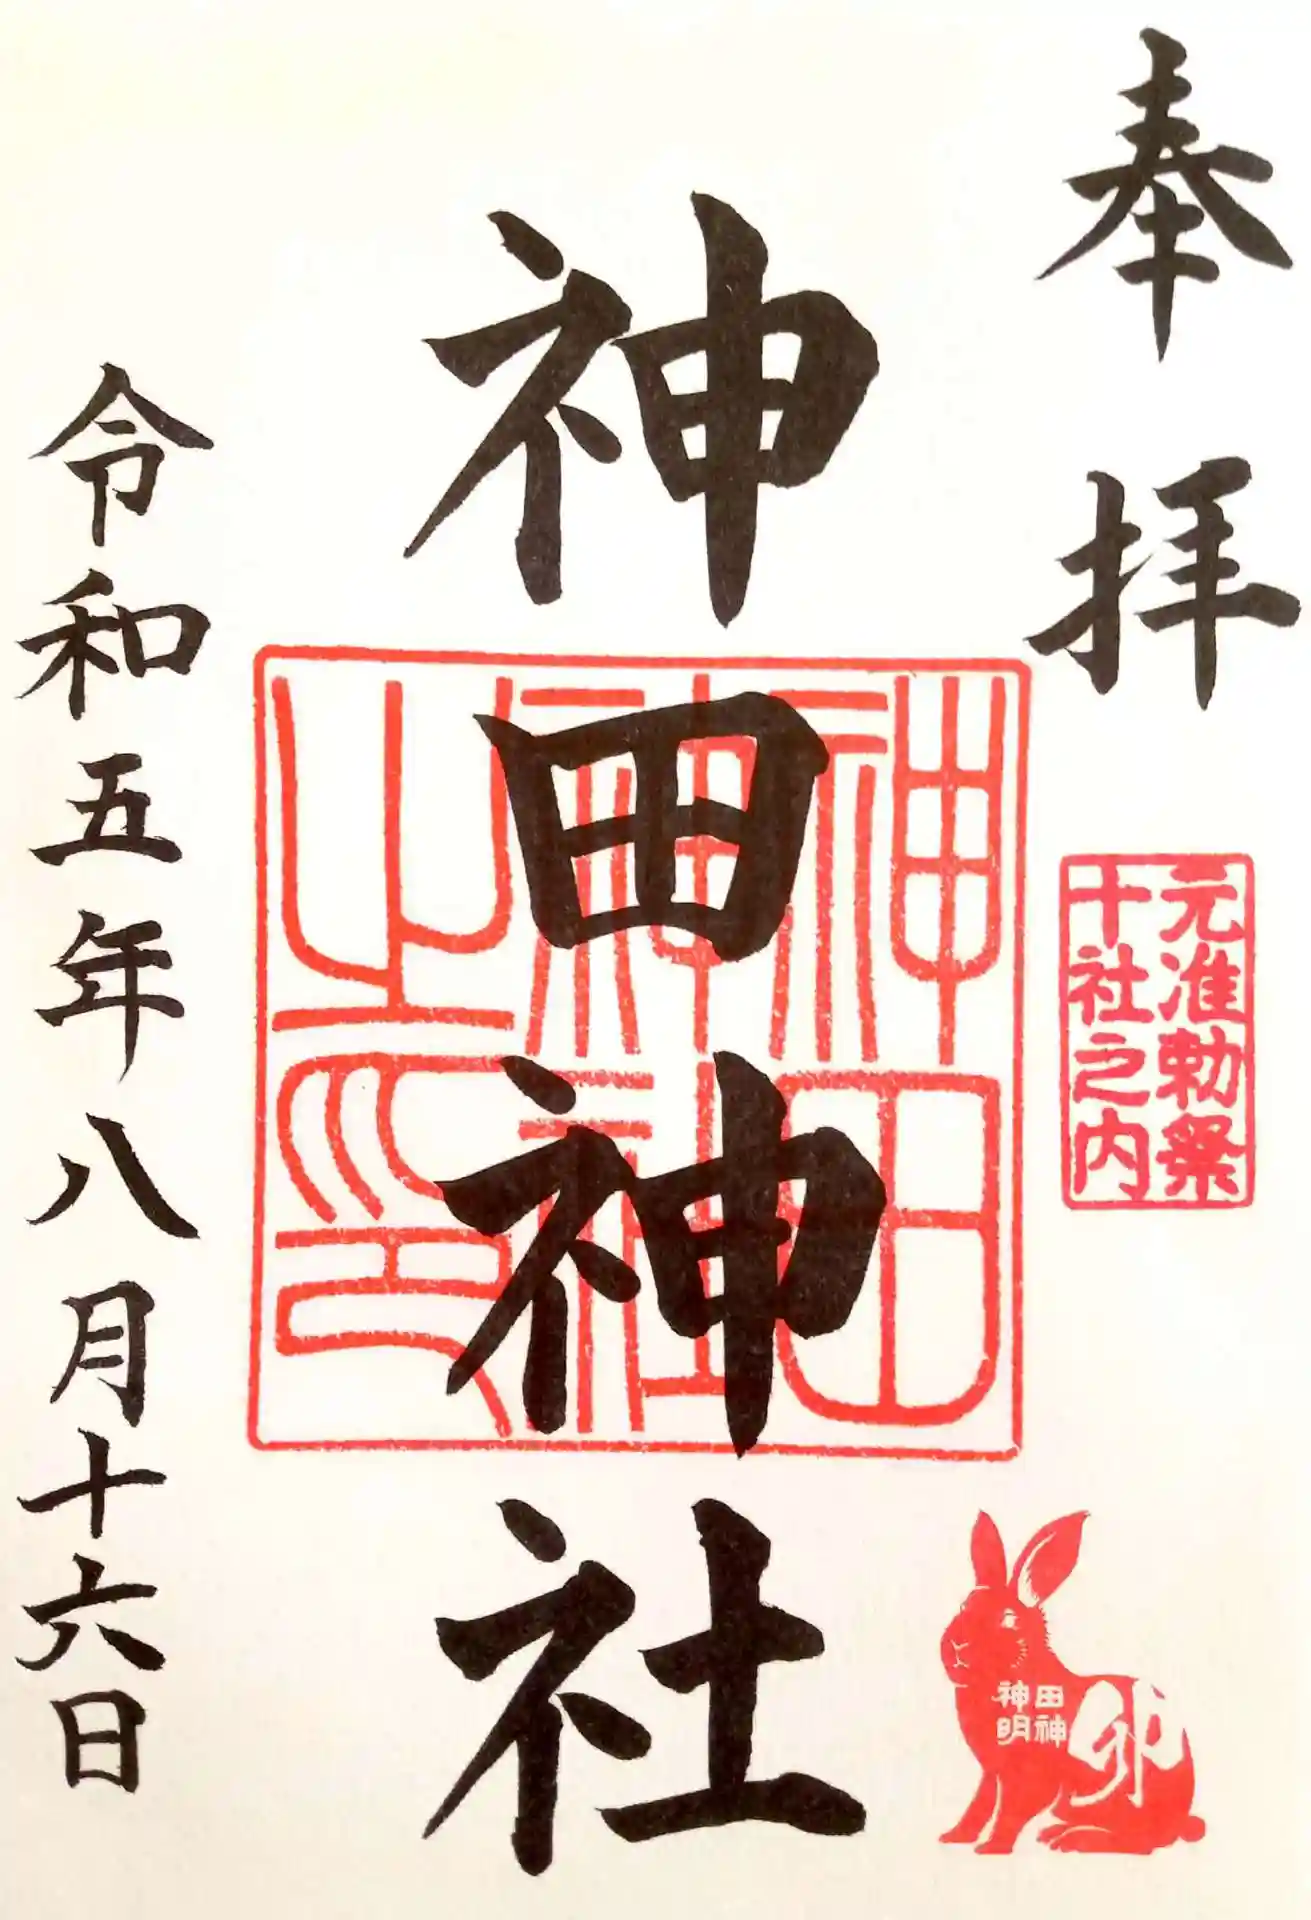 奉拝
元准勅祭
十社之内
神田神社
神田神社之印
田神
神明
卯
令和五年八月十六日